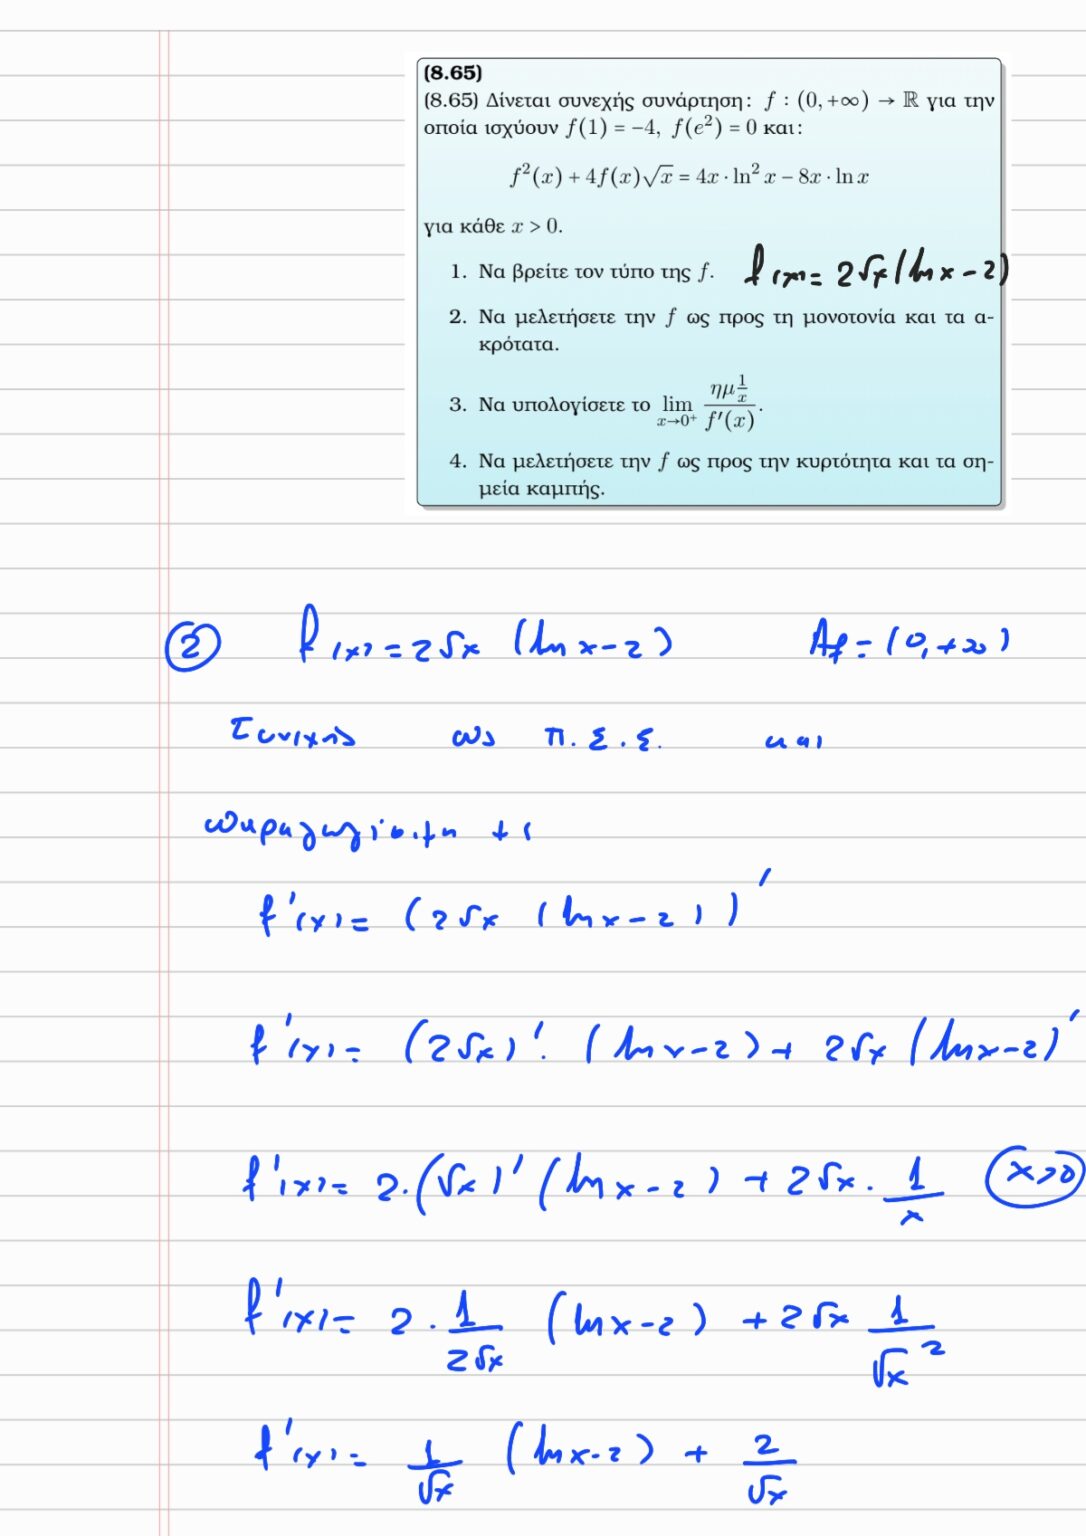 (8.65)
(8.65) Δίνεται συνεχής συνάρτηση: f : (0, +∞) → ℝ για την
οποία ισχύουν f(1) = −4, f(e²) = 0 και:
f²(x) + 4f(x)√x = 4x · ln² x − 8x · ln x
για κάθε x > 0.
1. Να βρείτε τον τύπο της f. f(x) = 2√x (ln x − 2)
2. Να μελετήσετε την f ως προς τη μονοτονία και τα α-
κρότατα.
3. Να υπολογίσετε το lim x→0⁺ ημ(1/x) / f′(x).
4. Να μελετήσετε την f ως προς την κυρτότητα και τα ση-
μεία καμπής.
② f(x) = 2√x (ln x − 2) A_f = (0, +∞)
Συνεχής ως π.σ.σ. και
παραγωγίσιμη με
f′(x) = (2√x (ln x − 2))′
f′(x) = (2√x)′ · (ln x − 2) + 2√x (ln x − 2)′
f′(x) = 2 · (√x)′ (ln x − 2) + 2√x · 1/x (x>0)
f′(x) = 2 · 1/(2√x) (ln x − 2) + 2√x 1/√x²
f′(x) = 1/√x (ln x − 2) + 2/√x